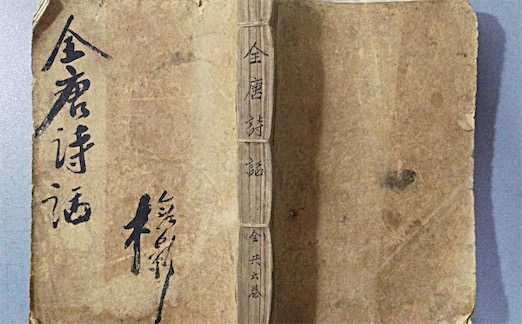 全唐詩話
全唐詩話
全共六卷